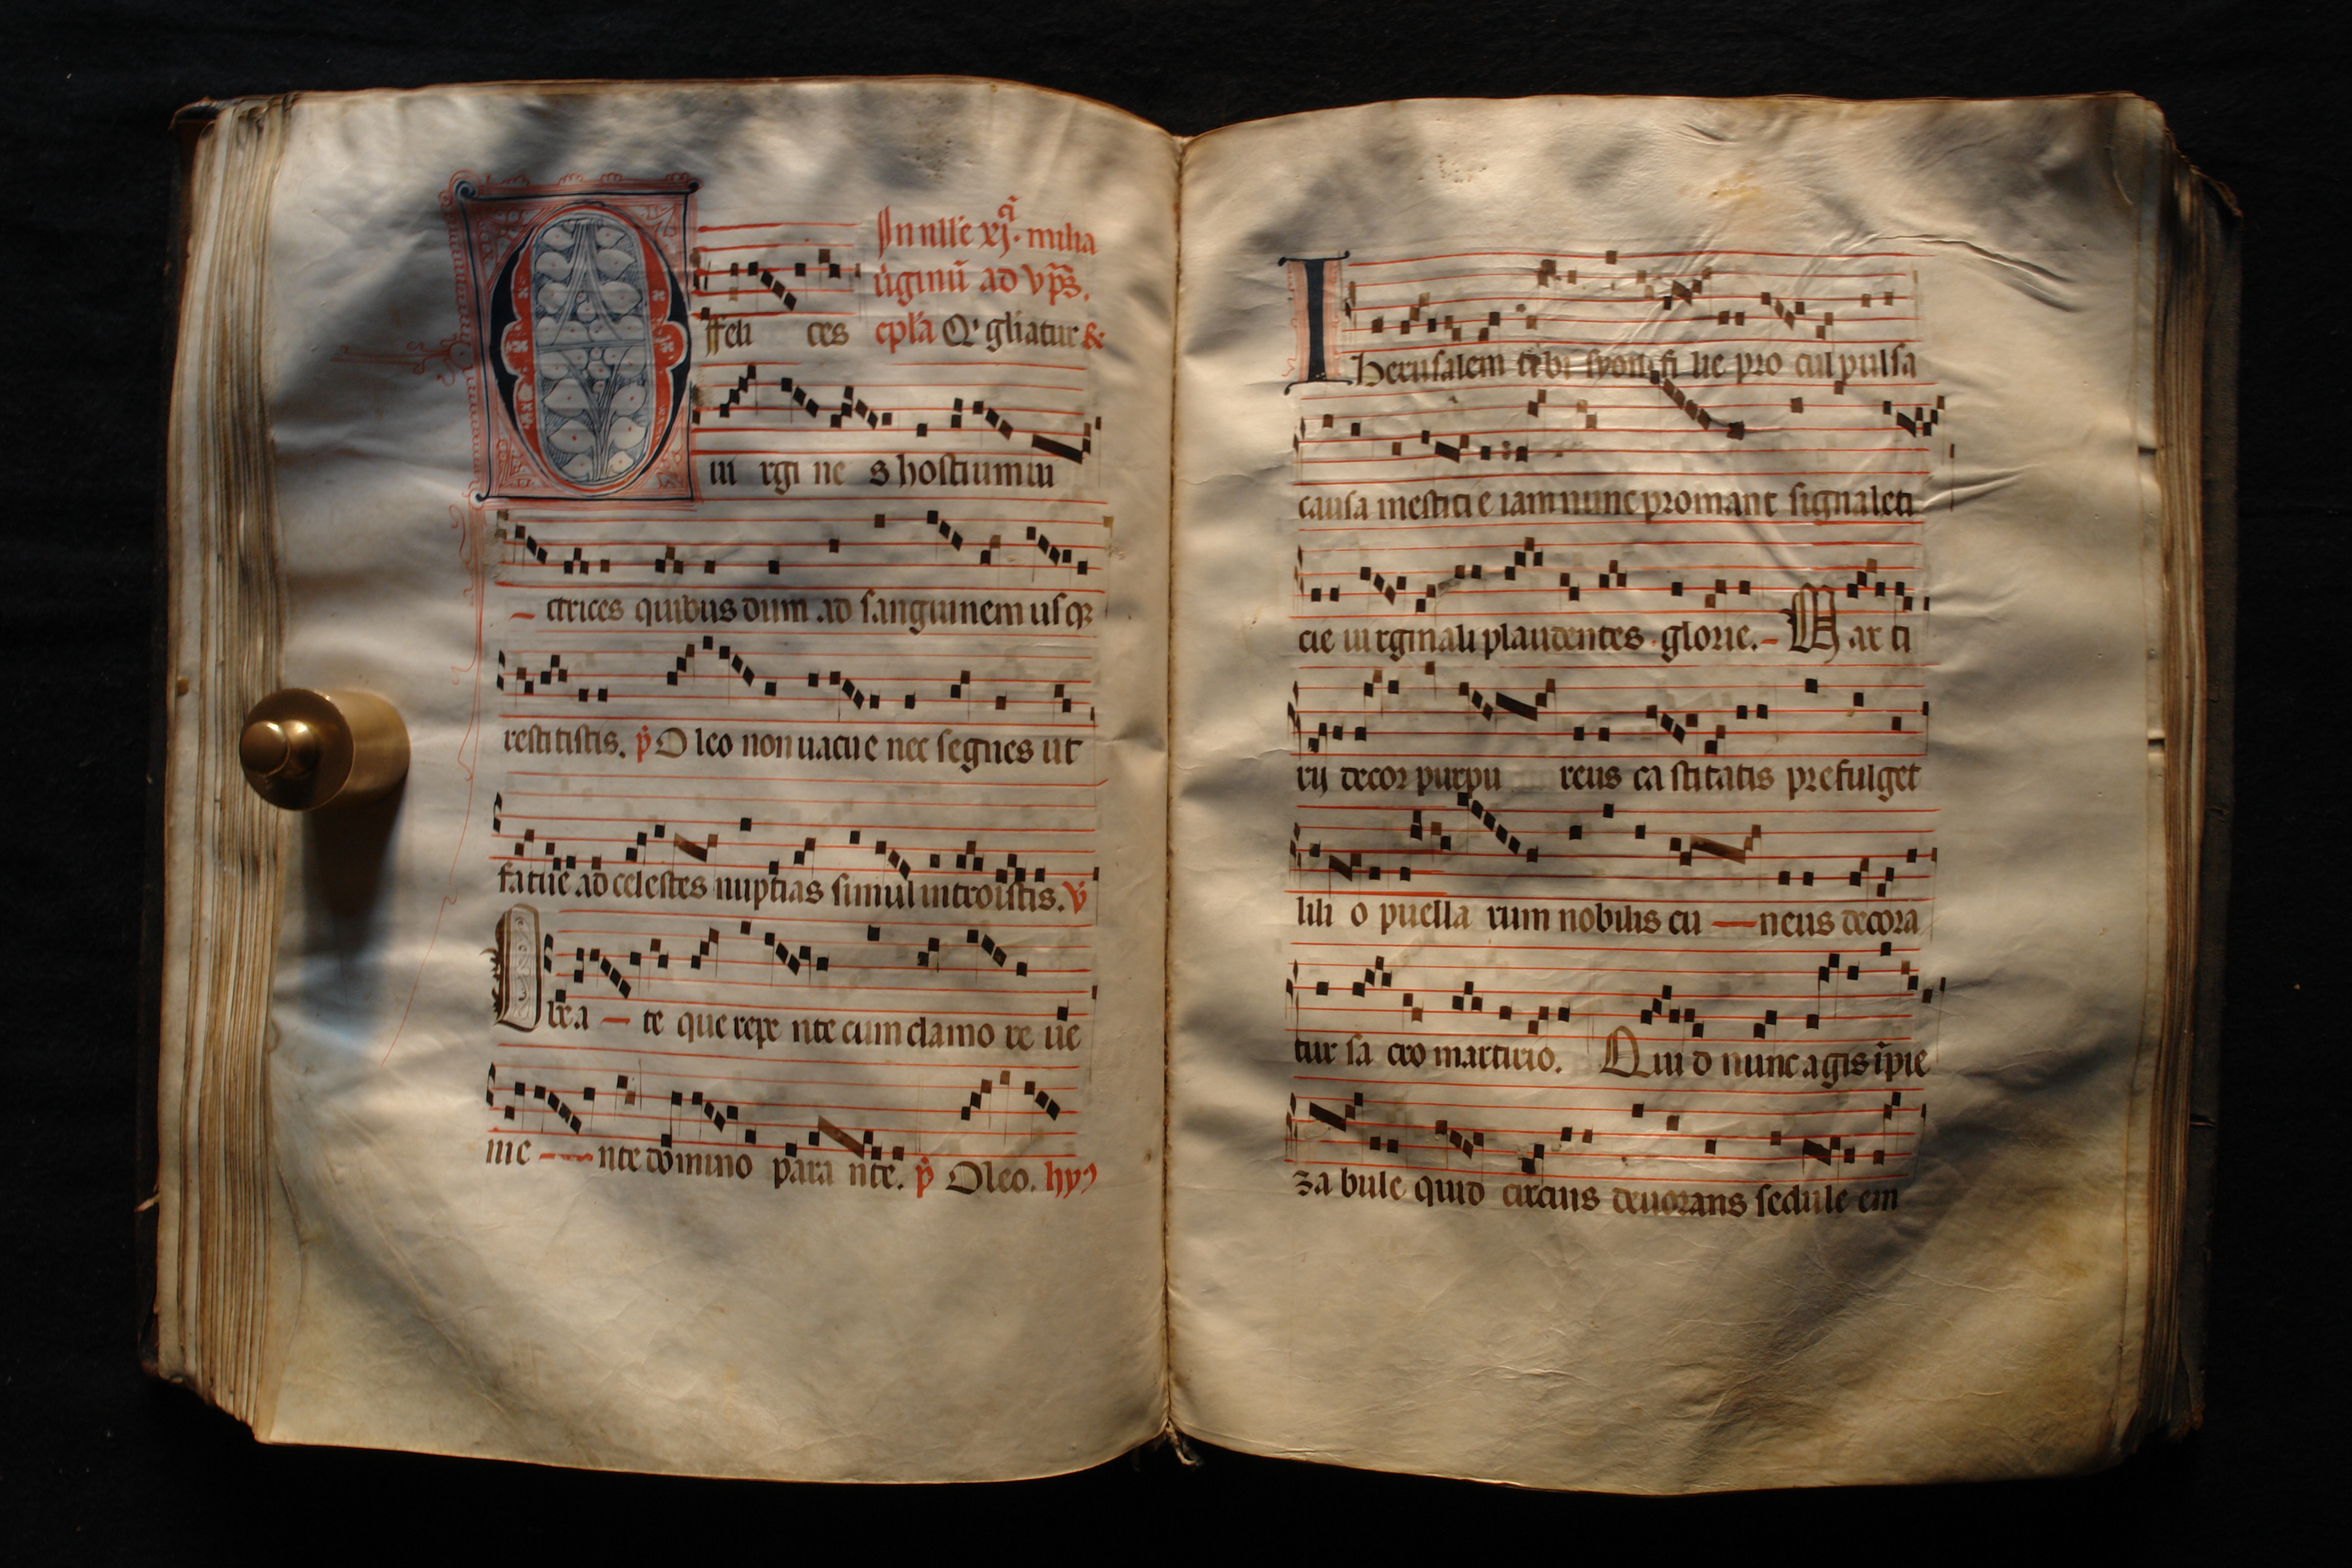 In nll'e xj. milia
u'ginu̅ ad vp̅s.
O ffeli ces cpl'a Q' gl'iatur &
ui rgi ne s hostium ui
– ctrices quibus dum ad sanguinem usq3
restitistis. p̊ O leo non uacue nec segnes ut
fatue ad celestes nuptias simul introistis. v̊
U ltra – te que repe nte cum clamo re ue
nie – nte domino para nte. p̊ Oleo. hyꝰ
I herusalem et ibi syon fi lie pro cul pulsa
causa mestici e iam nunc promant signa leti
cie ui rginali plaudentes glorie. – M ar ti
rij decor purpu reus ca stitatis prefulget
lili o puella rum nobilis cu – neus decora
tur sa cro martirio. Qui d nunc agis i̅pie
za bule quid circuis deuorans sedule em